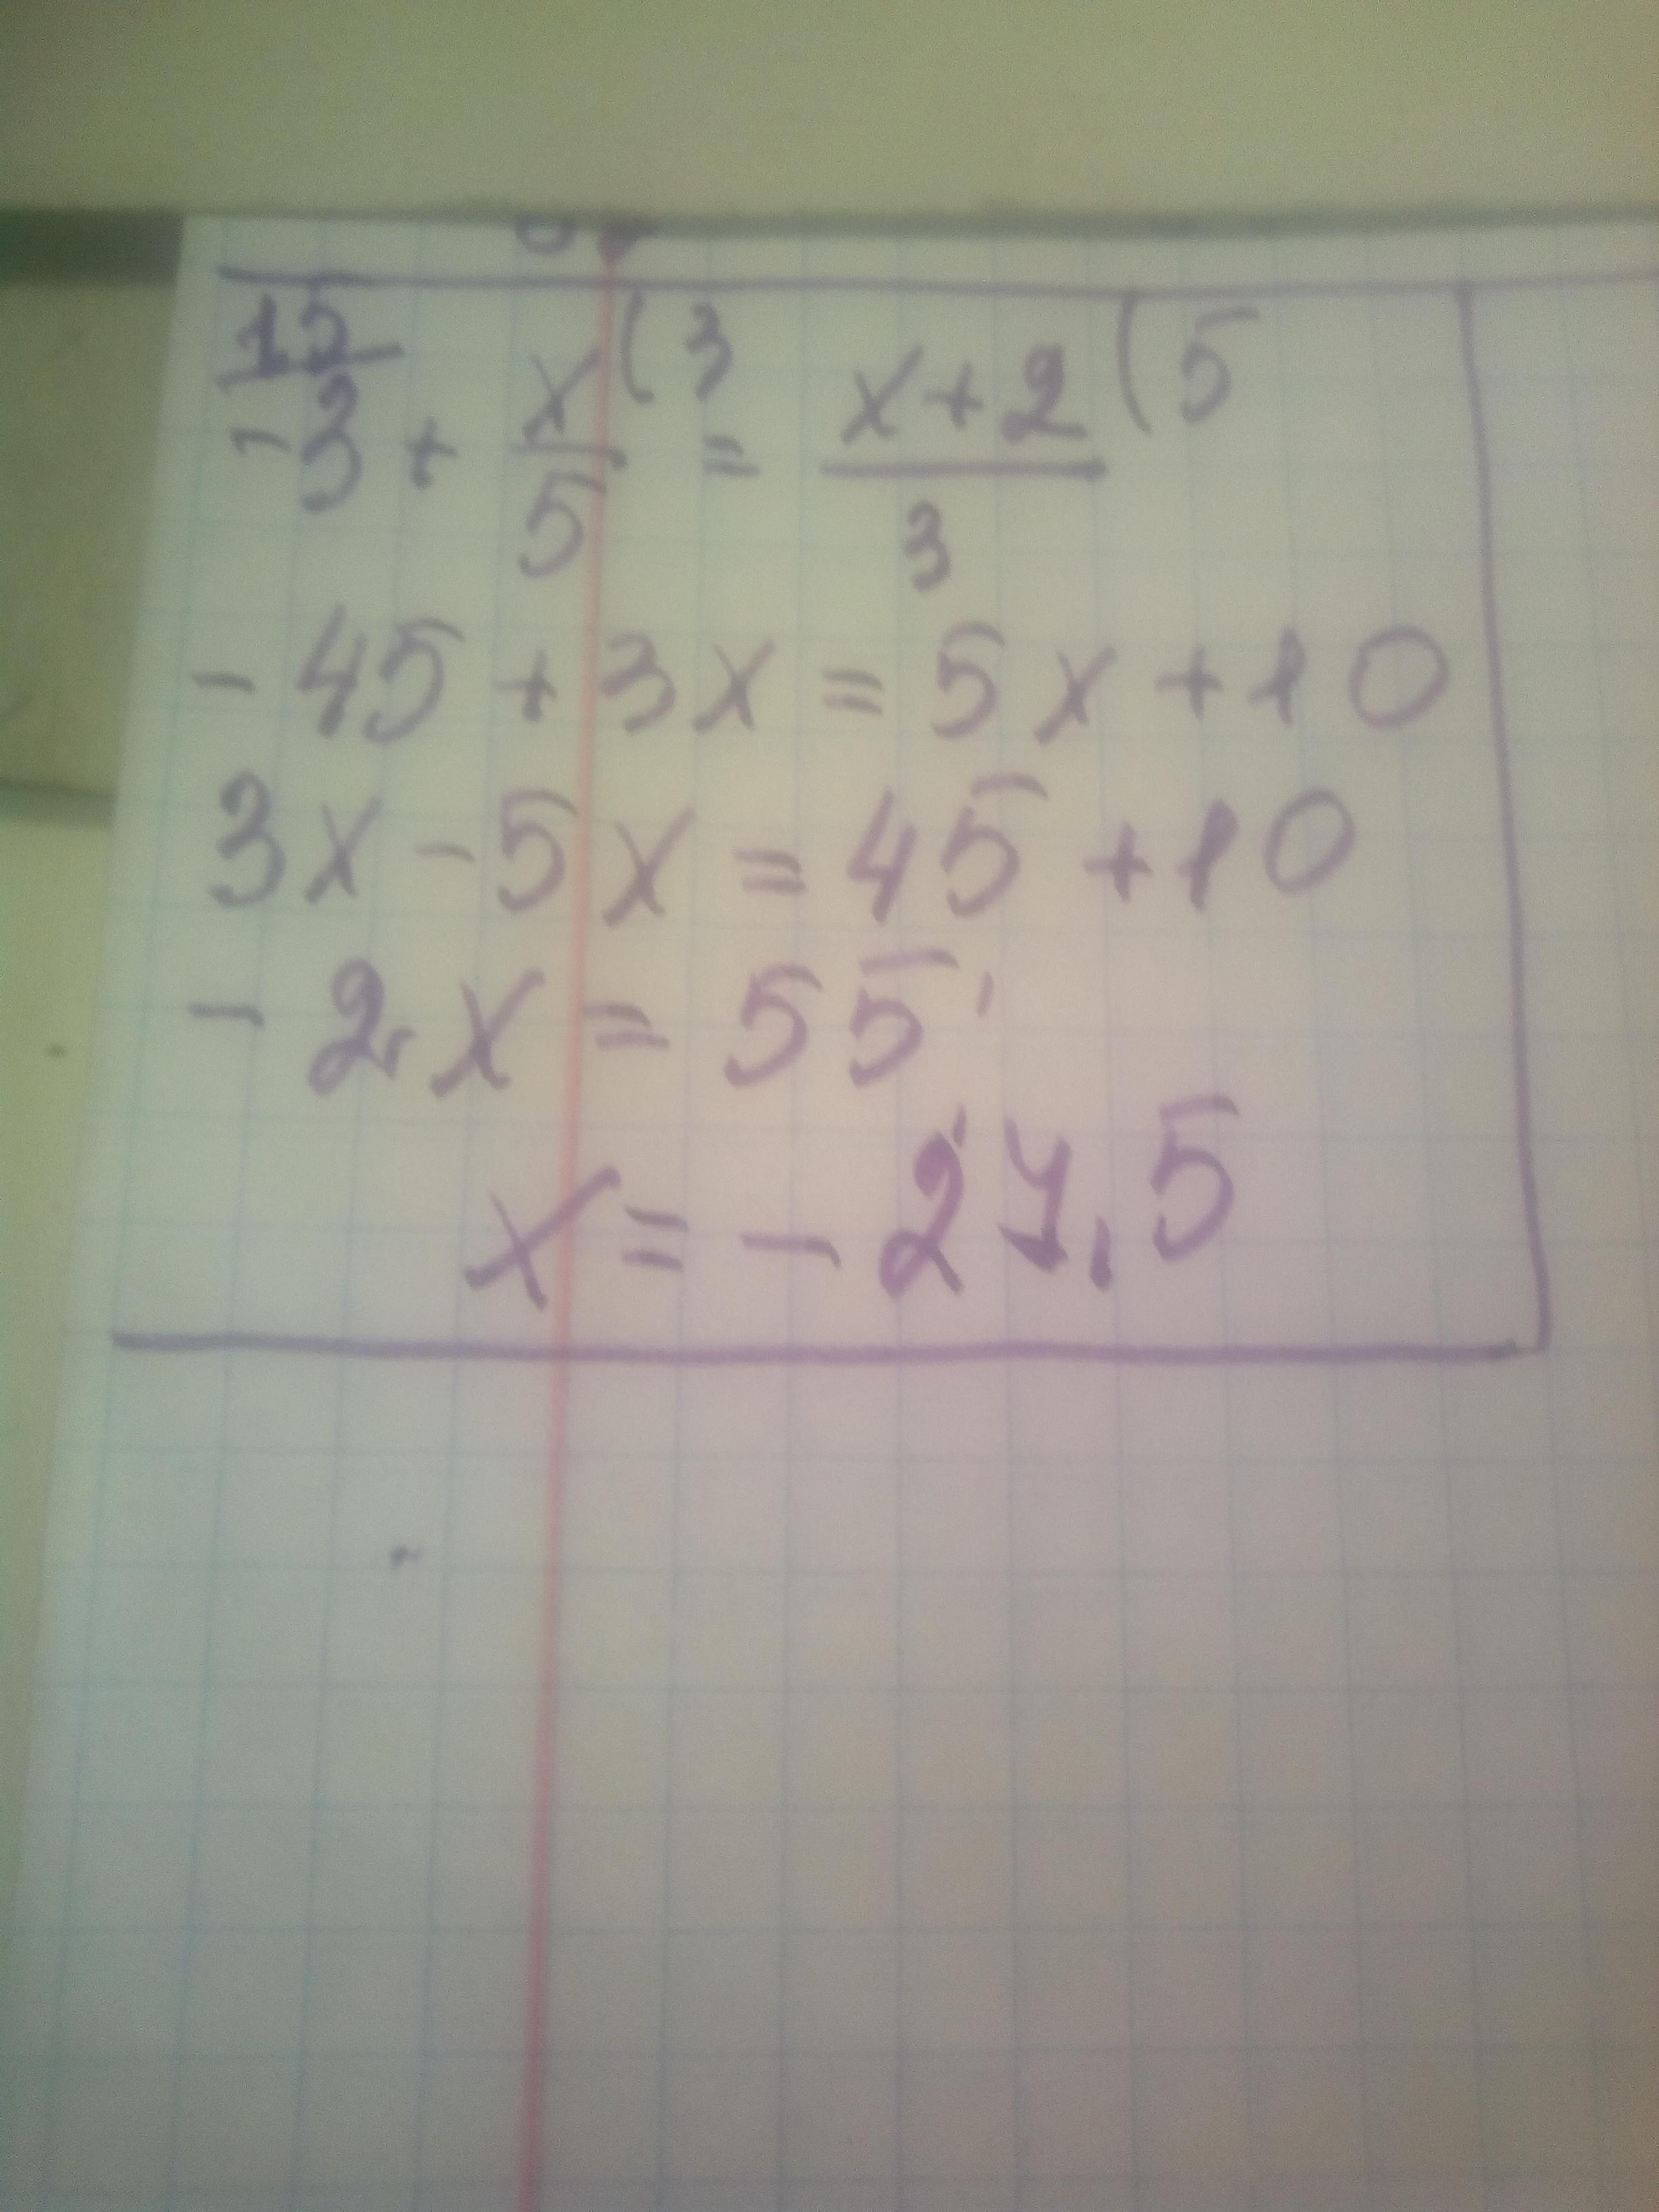 15
-3 + x/5 (3 = x+2/3 (5
-45 + 3x = 5x + 10
3x - 5x = 45 + 10
-2x = 55
x = -27,5